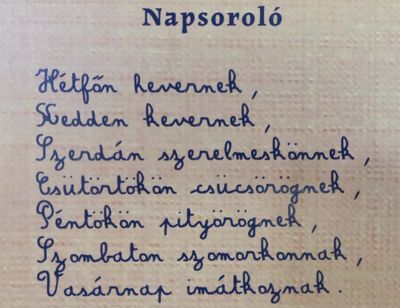 Napsoroló
Hétfőn hevernek,
Kedden kevernek,
Szerdán szerelmeskönnek,
Csütörtökön csücsörögnek,
Péntökön pityörögnek,
Szombaton szomorkonnak,
Vasárnap imátkoznak.